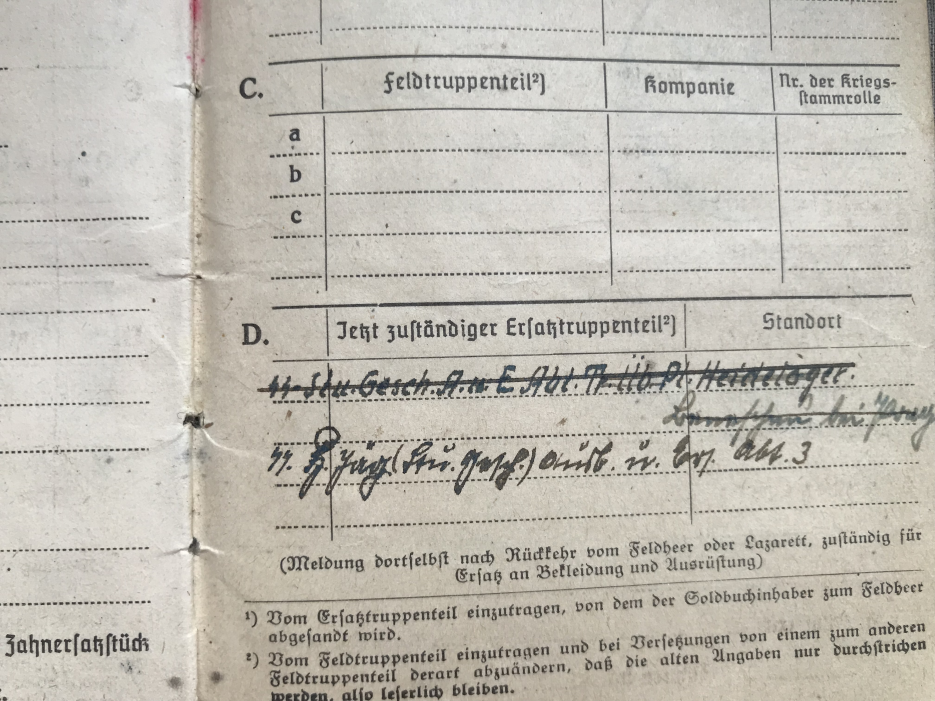 C. Feldtruppenteil²) Kompanie Nr. der Kriegs-
stammrolle
a
b
c
D. Jetzt zuständiger Ersatztruppenteil²) Standort
SS-Stu.Gesch.A u E Abt. Tr. Üb. Pl. Heidelager.
bei
SS. Pz. Jäg (Stu. Gesch.) Ausb. u. Ers. Abt. 3
(Meldung dortselbst nach Rückkehr vom Feldheer oder Lazarett, zuständig für
Ersatz an Bekleidung und Ausrüstung)
¹) Vom Ersatztruppenteil einzutragen, von dem der Soldbuchinhaber zum Feldheer
abgesandt wird.
²) Vom Feldtruppenteil einzutragen und bei Versetzungen von einem zum anderen
Feldtruppenteil derart abzuändern, daß die alten Angaben nur durchstrichen
werden, also leserlich bleiben.
Zahnersatzstück